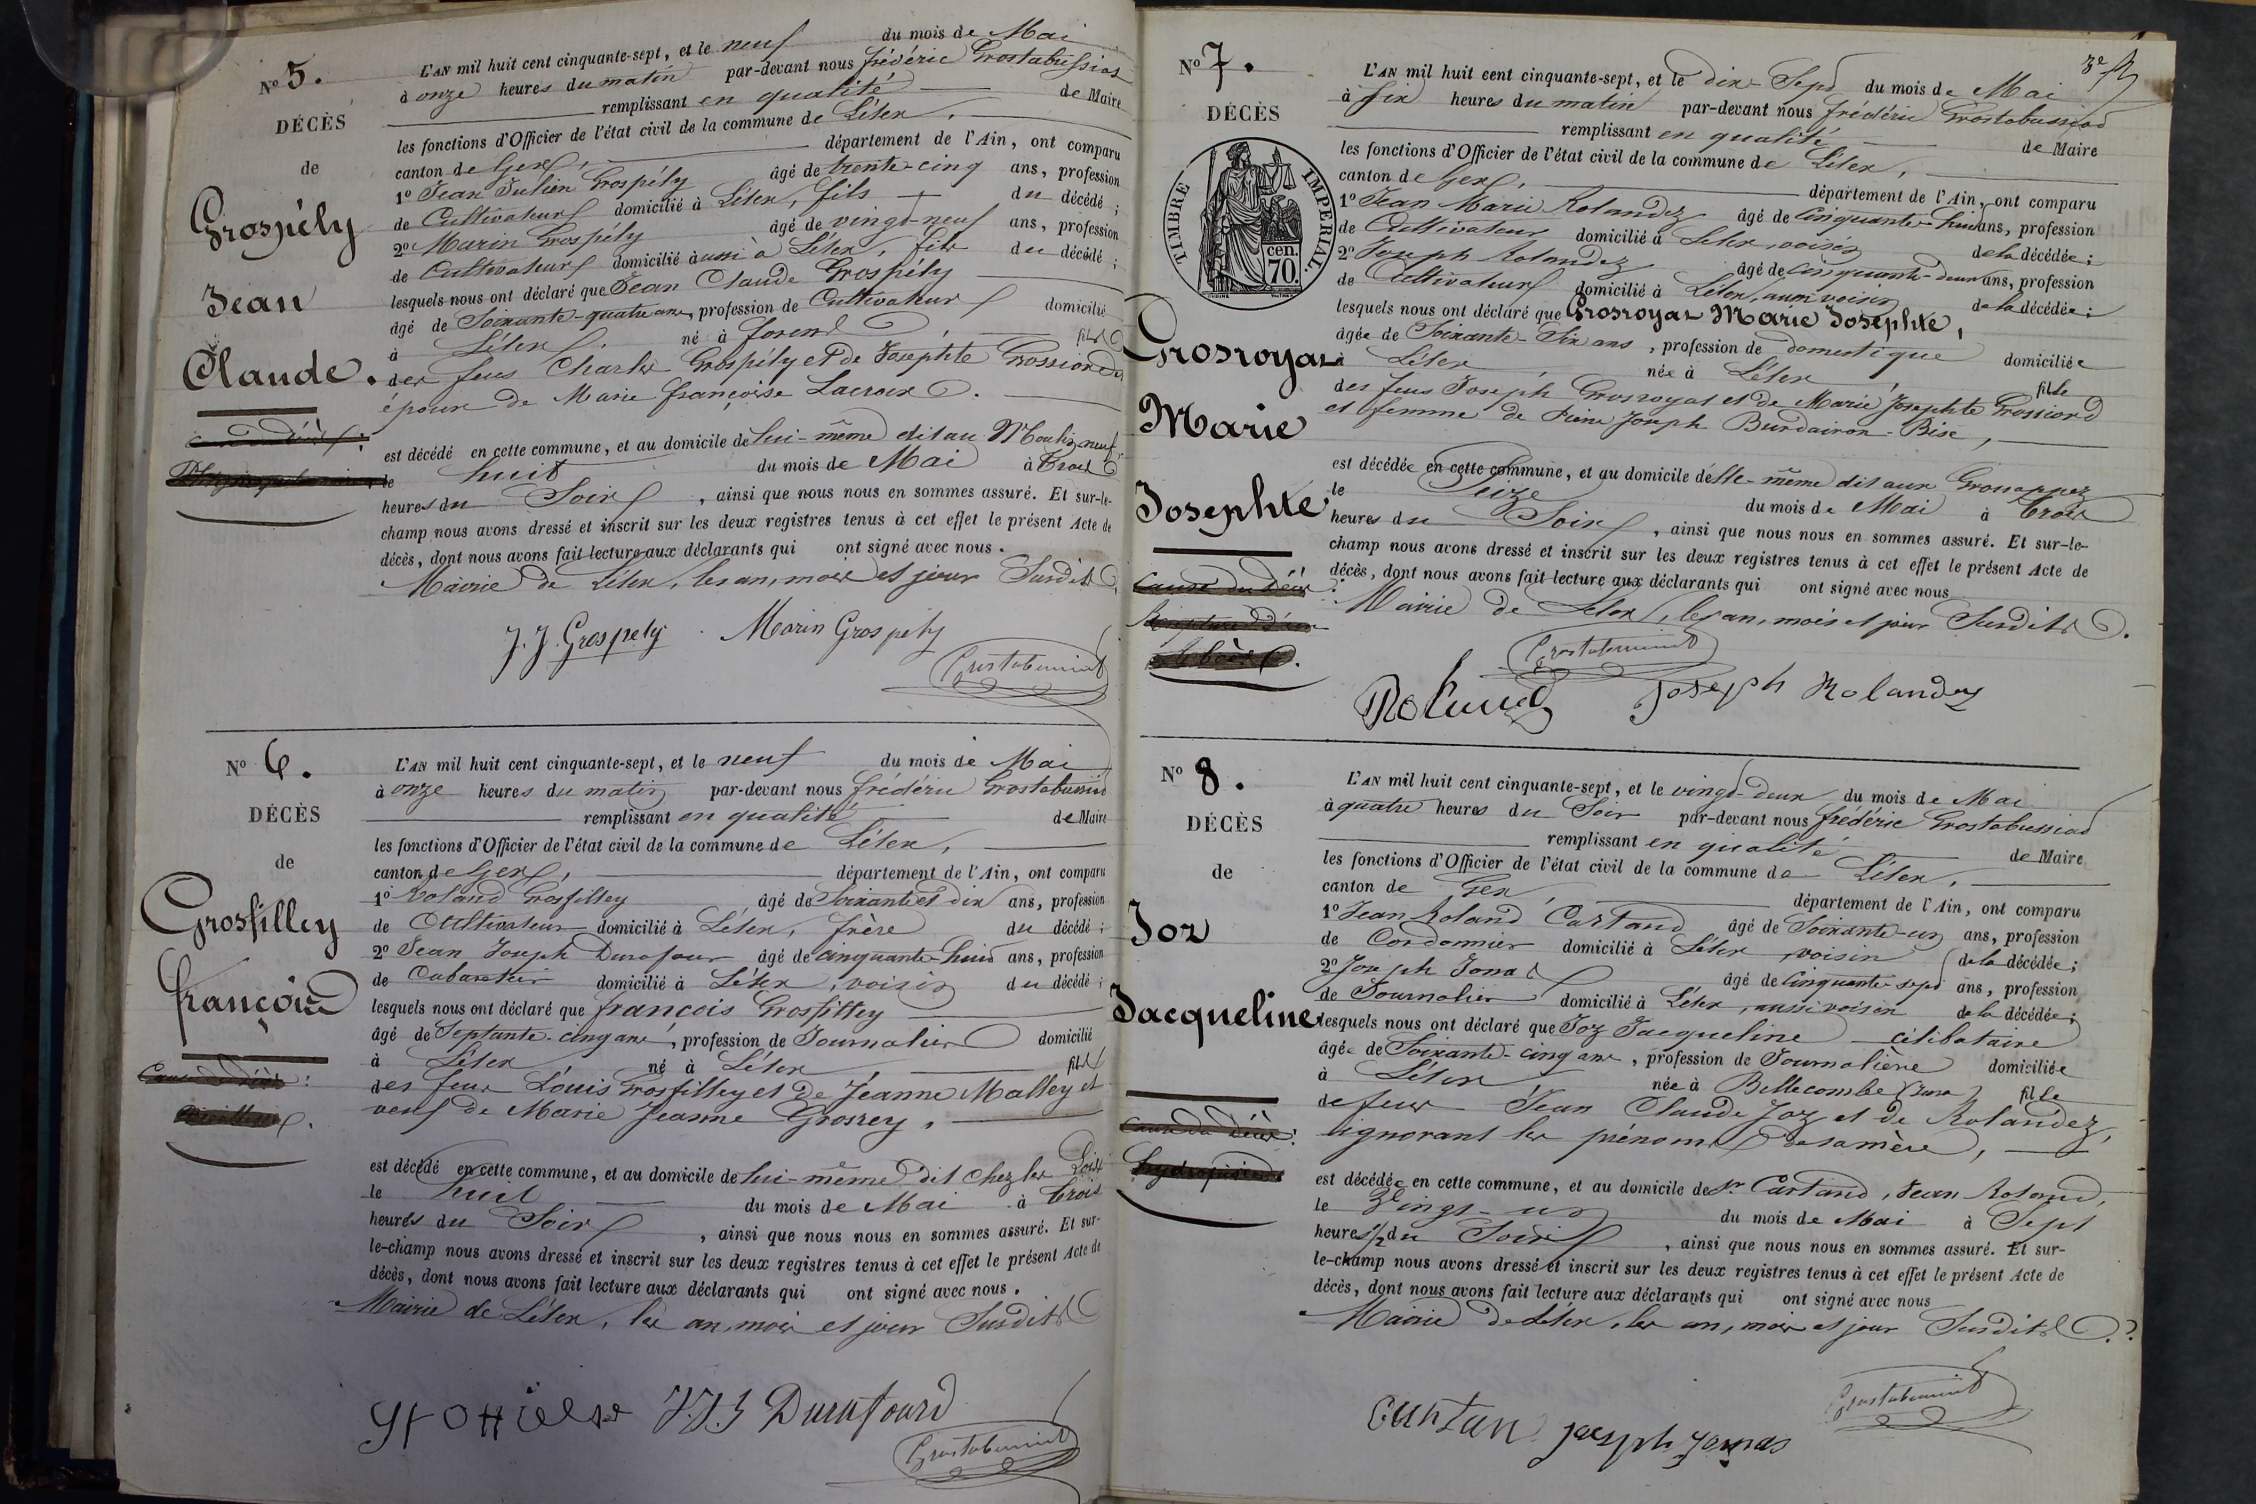 No 5.
DÉCÈS
de
Grospély
Jean
Claude.
L'AN mil huit cent cinquante-sept, et le neuf du mois de Mai
à onze heures du matin par-devant nous frédéric Grostabussiat
remplissant en qualité de Maire
les fonctions d'Officier de l'état civil de la commune de Lélex,
canton de Gex, département de l'Ain, ont comparu
1o Jean Julien Grospély âgé de trente-cinq ans, profession
de Cultivateur domicilié à Lélex, fils du décédé ;
2o Marin Grospély âgé de vingt-neuf ans, profession
de Cultivateur domicilié aussi à Lélex, fils du décédé ;
lesquels nous ont déclaré que Jean Claude Grospély
âgé de Soixante-quatre ans, profession de Cultivateur domicilié
à Lélex, né à forens, fils
des feus Charles Grospély et de Josephte Grossiord
époux de Marie françoise Lacroix.
est décédé en cette commune, et au domicile de lui-même dit au Moulin neuf,
le huit du mois de Mai à trois
heures du Soir, ainsi que nous nous en sommes assuré. Et sur-le-
champ nous avons dressé et inscrit sur les deux registres tenus à cet effet le présent Acte de
décès, dont nous avons fait lecture aux déclarants qui ont signé avec nous.
Mairie de Lélex, les an, mois et jour Susdits.
J. J. Grospely. Marin Grospely
Grostabussiat
No 6.
DÉCÈS
de
Grosfilley
françois
L'AN mil huit cent cinquante-sept, et le neuf du mois de Mai
à onze heures du matin par-devant nous frédéric Grostabussiat
remplissant en qualité de Maire
les fonctions d'Officier de l'état civil de la commune de Lélex,
canton de Gex, département de l'Ain, ont comparu
1o Roland Grosfilley âgé de Soixante et dix ans, profession
de Cultivateur domicilié à Lélex, frère du décédé ;
2o Jean Joseph Durafour âgé de cinquante-huit ans, profession
de Cabaretier domicilié à Lélex, voisin du décédé ;
lesquels nous ont déclaré que françois Grosfilley
âgé de Septante-cinq ans, profession de Journalier domicilié
à Lélex né à Lélex, fils
des feus Louis Grosfilley et de Jeanne Malley et
veuf de Marie Jeanne Grosrey.
est décédé en cette commune, et au domicile de lui-même dit chez les
le huit du mois de Mai à trois
heures du Soir, ainsi que nous nous en sommes assuré. Et sur-
le-champ nous avons dressé et inscrit sur les deux registres tenus à cet effet le présent Acte de
décès, dont nous avons fait lecture aux déclarants qui ont signé avec nous.
Mairie de Lélex, les an, mois et jour Susdits
J J Durafourd
Grostabussiat
No 7.
DÉCÈS
TIMBRE IMPERIAL.
70 cen.
Grosroyat
Marie
Josephte
Cause du Décès
L'AN mil huit cent cinquante-sept, et le dix-Sept du mois de Mai
à six heures du matin par-devant nous frédéric Grostabussiat
remplissant en qualité de Maire
les fonctions d'Officier de l'état civil de la commune de Lélex,
canton de Gex, département de l'Ain, ont comparu
1o Jean Marie Rolandez âgé de Cinquante-huit ans, profession
de Cultivateur domicilié à Lélex, voisin de la décédée ;
2o Joseph Rolandez âgé de cinquante-deux ans, profession
de Cultivateur domicilié à Lélex, aussi voisin de la décédée ;
lesquels nous ont déclaré que Grosroyat Marie Josephte,
âgée de Soixante-Six ans, profession de domestique domiciliée
à Lélex, née à Lélex, fille
des feus Joseph Grosroyat et de Marie Josephte Grossiord
et femme de Pierre Joseph Burdairon-Bise,
est décédée en cette commune, et au domicile d'elle-même dit aux
le Seize du mois de Mai à trois
heures du Soir, ainsi que nous nous en sommes assuré. Et sur-le-
champ nous avons dressé et inscrit sur les deux registres tenus à cet effet le présent Acte de
décès, dont nous avons fait lecture aux déclarants qui ont signé avec nous
Mairie de Lélex, les an, mois et jour Susdits.
Grostabussiat
Joseph Rolandez
No 8.
DÉCÈS
de
Joz
Jacqueline
L'AN mil huit cent cinquante-sept, et le vingt-deux du mois de Mai
à quatre heures du Soir par-devant nous frédéric Grostabussiat
remplissant en qualité de Maire
les fonctions d'Officier de l'état civil de la commune de Lélex,
canton de Gex, département de l'Ain, ont comparu
1o Jean Roland Cartand âgé de Soixante-un ans, profession
de Cordonnier domicilié à Lélex, voisin de la décédée ;
2o Joseph Jonas âgé de Cinquante-sept ans, profession
de Journalier domicilié à Lélex, aussi voisin de la décédée ;
lesquels nous ont déclaré que Joz Jacqueline célibataire
âgée de Soixante-cinq ans, profession de Journalière domiciliée
à Lélex née à Bellecombe (Jura) fille
de feus Jean Claude Joz et de Rolandez,
ignorant les prénoms de sa mère,
est décédée en cette commune, et au domicile de Sr Cartand, Jean Roland,
le Vingt-un du mois de Mai à Sept
heures 1/2 du Soir, ainsi que nous nous en sommes assuré. Et sur-
le-champ nous avons dressé et inscrit sur les deux registres tenus à cet effet le présent Acte de
décès, dont nous avons fait lecture aux déclarants qui ont signé avec nous
Mairie de Lélex, les an, mois et jour Susdits.
Grostabussiat
Cartan Joseph Jonas